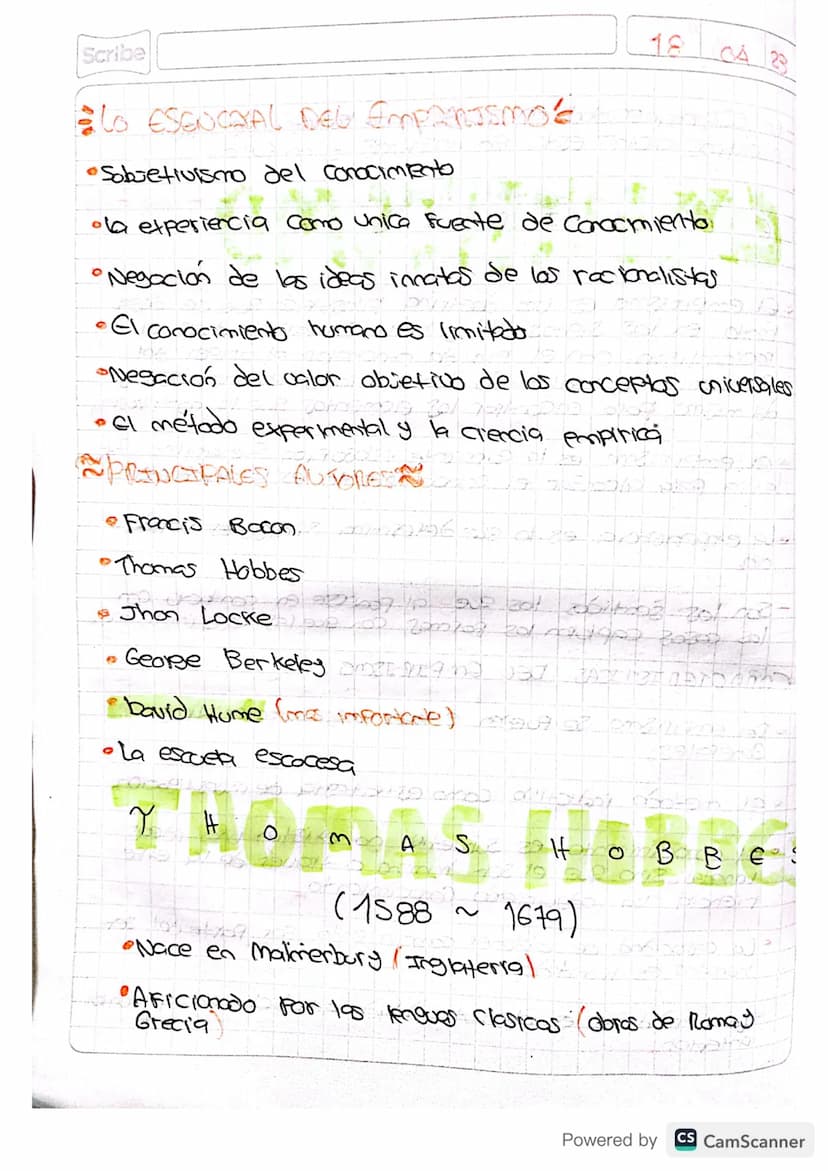 Scribe
18 04 23
Lo ESENCIAL DEL EMPIRISMO
•Sobjetivismo del conocimiento
•la experiencia como unica fuente de Conocmiento
•Negación de las ideas innatas de los racionalistas
•El conocimiento humano es limitado
•Negación del valor objetivo de los conceptos universales
•El método expermental y la ciencia empirica
≈PRINCIPALES AUTORES≈
•Francis Bacon
•Thomas Hobbes
•Jhon Locke
•George Berkeley
•David Hume (mas importante)
•La escuela escocesa
THOMAS HOBBES
(1588 ~ 1679)
•Nace en (Inglaterra)
•Aficionado por las lenguas clasicas (obras de Roma y
Grecia)
Powered by CS CamScanner